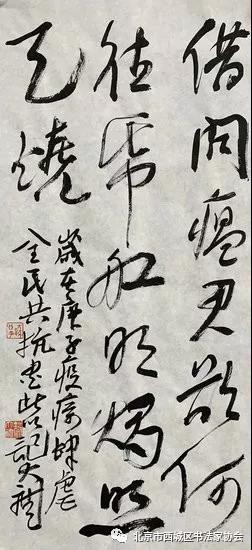 借问瘟君欲何
往纸船明烛照
天烧
岁在庚子疫疠肆虐
全民共抗书此以记
北京市西城区书法家协会